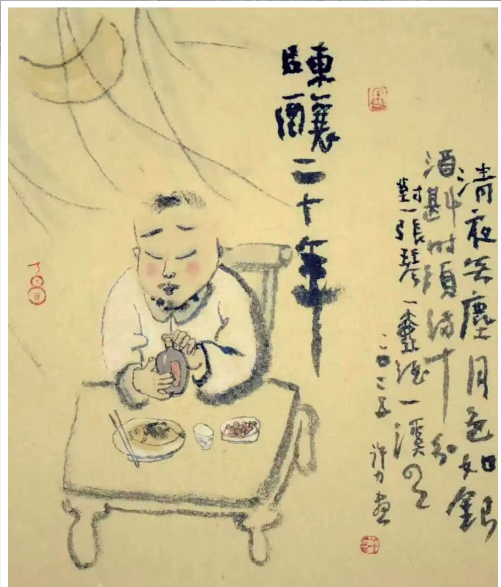 陳釀二十年
清夜无塵月色如銀
酒斟时須滿十分
對一張琴一壺酒一溪云
二〇二五 许力画